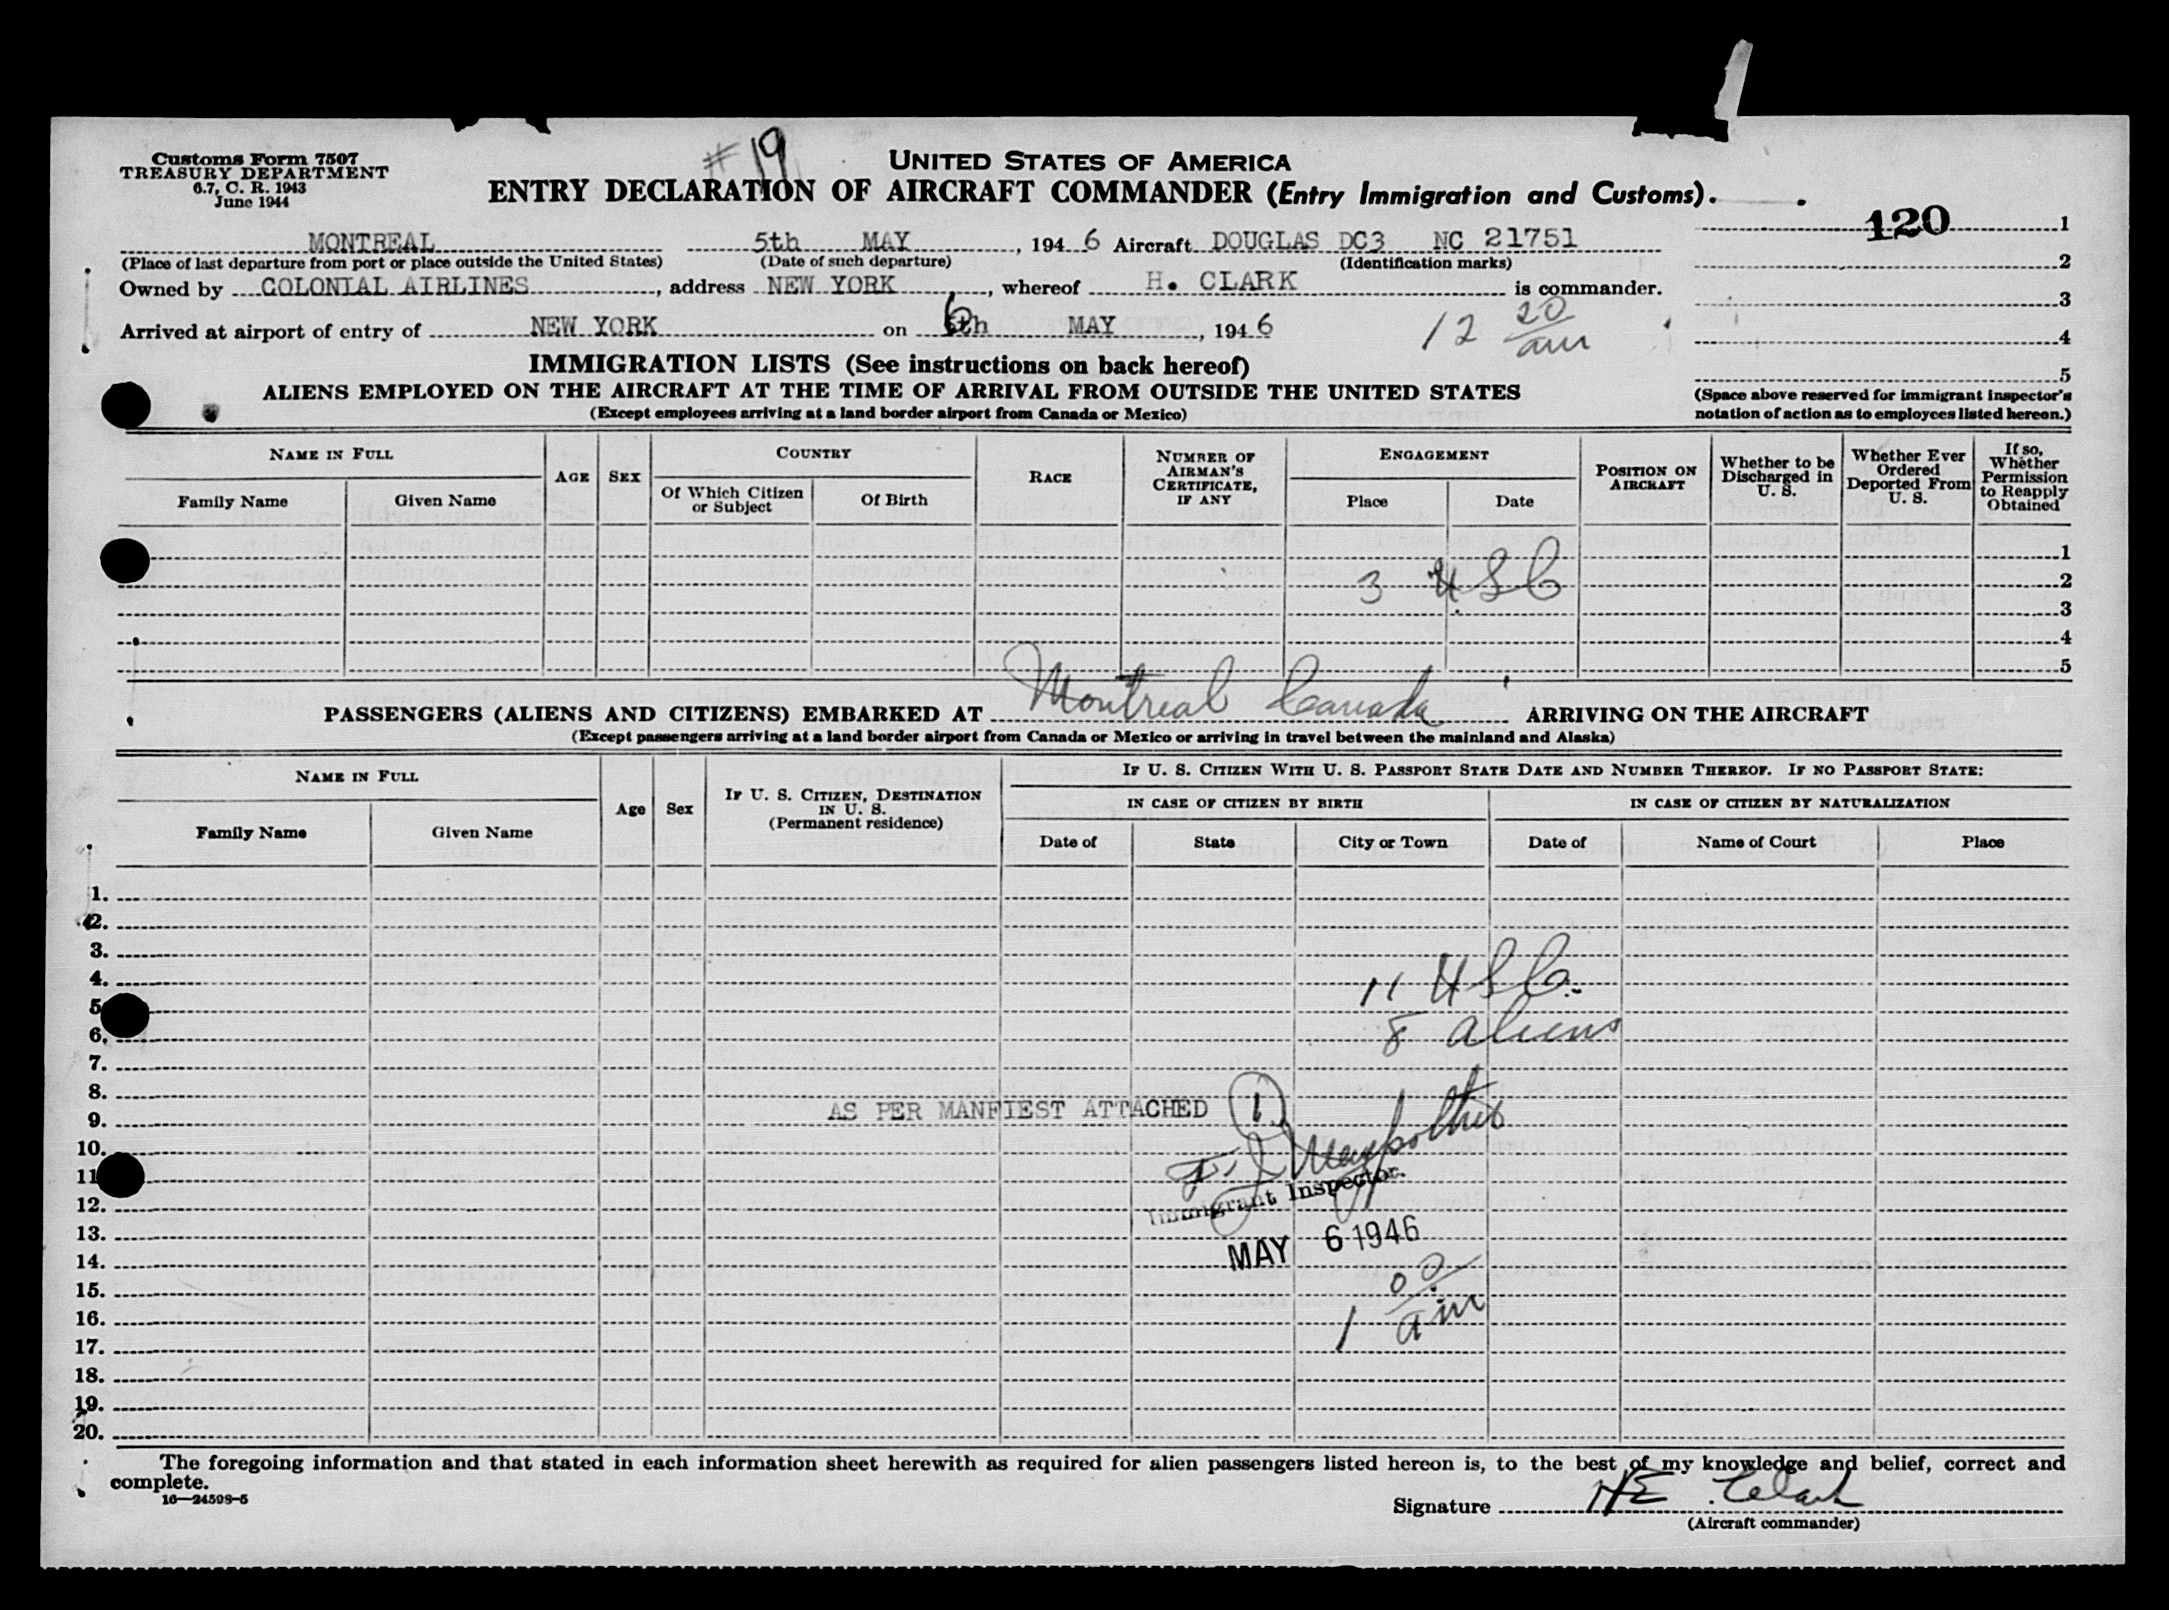 Customs Form 7507
TREASURY DEPARTMENT
6.7, C. R. 1943
June 1944
# 19
UNITED STATES OF AMERICA
ENTRY DECLARATION OF AIRCRAFT COMMANDER (Entry Immigration and Customs).
120 1
MONTREAL 5th MAY, 194 6 Aircraft DOUGLAS DC3 NC 21751
(Place of last departure from port or place outside the United States) (Date of such departure) (Identification marks)
2
Owned by COLONIAL AIRLINES, address NEW YORK, whereof H. CLARK is commander.
3
Arrived at airport of entry of NEW YORK on 6th MAY, 194 6 12 20 am
4
IMMIGRATION LISTS (See instructions on back hereof)
5
ALIENS EMPLOYED ON THE AIRCRAFT AT THE TIME OF ARRIVAL FROM OUTSIDE THE UNITED STATES
(Except employees arriving at a land border airport from Canada or Mexico)
(Space above reserved for immigrant inspector's
notation of action as to employees listed hereon.)
NAME IN FULL
Family Name Given Name
AGE SEX
COUNTRY
Of Which Citizen or Subject Of Birth
RACE
NUMBER OF AIRMAN'S CERTIFICATE, IF ANY
ENGAGEMENT
Place Date
POSITION ON AIRCRAFT
Whether to be Discharged in U. S.
Whether Ever Ordered Deported From U. S.
If so, Whether Permission to Reapply Obtained
1
3 USC 2
3
4
5
PASSENGERS (ALIENS AND CITIZENS) EMBARKED AT Montreal Canada ARRIVING ON THE AIRCRAFT
(Except passengers arriving at a land border airport from Canada or Mexico or arriving in travel between the mainland and Alaska)
NAME IN FULL
Family Name Given Name
Age Sex
IF U. S. CITIZEN, DESTINATION IN U. S.
(Permanent residence)
IF U. S. CITIZEN WITH U. S. PASSPORT STATE DATE AND NUMBER THEREOF. IF NO PASSPORT STATE:
IN CASE OF CITIZEN BY BIRTH IN CASE OF CITIZEN BY NATURALIZATION
Date of State City or Town Date of Name of Court Place
1.
2.
3.
4. 11 USC.
5.
6. 8 aliens
7.
8.
AS PER MANFIEST ATTACHED 1
9.
10.
11
12. Immigrant Inspector.
13. MAY 6 1946
14.
15.
16. 1 00 am
17.
18.
19.
20.
The foregoing information and that stated in each information sheet herewith as required for alien passengers listed hereon is, to the best of my knowledge and belief, correct and
complete.
16—24598-5
Signature HE Clark
(Aircraft commander)